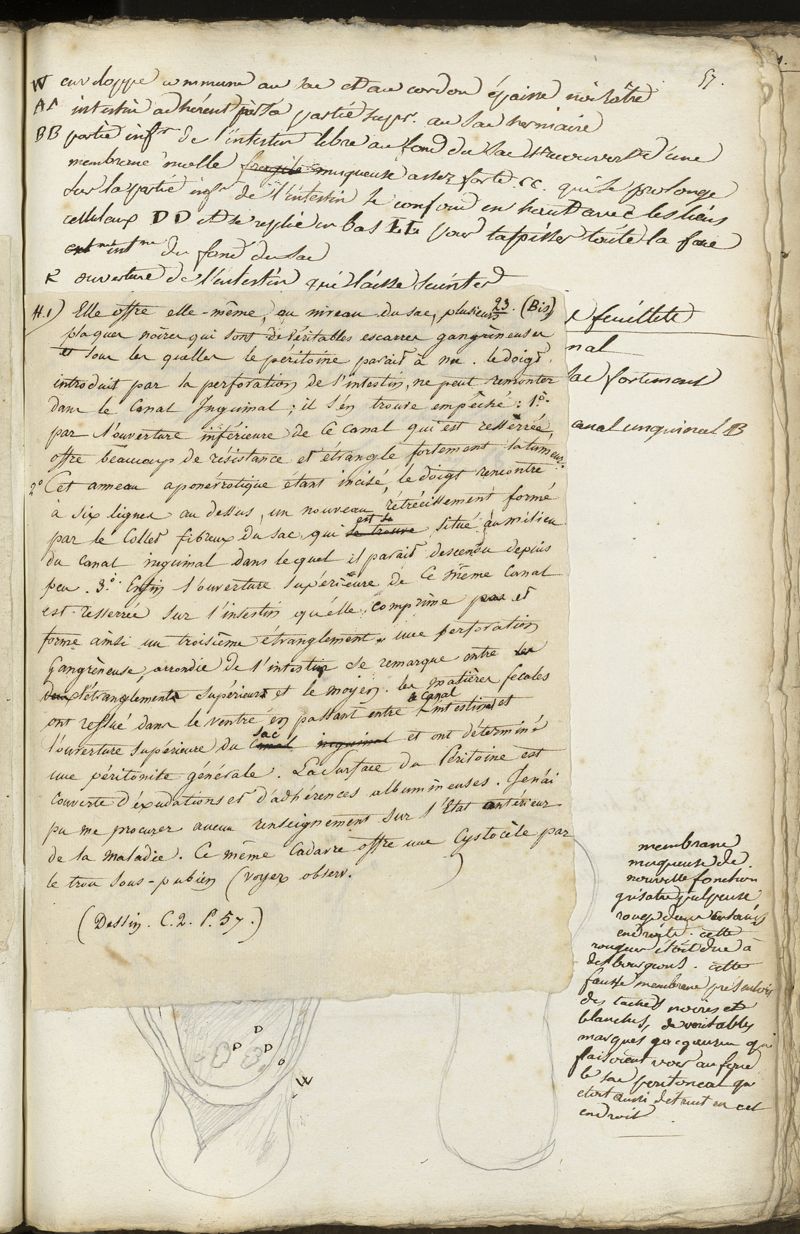 57.
W enveloppe commune au sac et au cordon épaisse noirâtre
AA intestin adhérent à la partie supr. au sac herniaire
BB partie infre de l'intestin libre au fond du sac et recouverte d'une
membrane molle fragile muqueuse assez forte. CC. qui se prolonge
sur la partie infre de l'intestin se confond en haut avec les liens
celluleux DD et se replie en bas EE pour tapisser toute la face
extne intne du fond du sac
ouverture de l'intestin qui laisse suinter
feuillets
nal
sac fortement
canal inguinal B
23. (Bis)
H.1) Elle offre elle-même, au niveau du sac, plusieurs
plaques noires qui sont de véritables escarres gangréneuses
et sous les quelles le péritoine parait à nu. le doigt,
introduit par la perforation de l'intestin, ne peut remonter
dans le Canal Inguinal; il s'en trouve empêché: 1o.
par l'ouverture inférieure de ce canal qui est resserrée,
offre beaucoup de résistance et étrangle fortement la tumeur.
2o Cet anneau aponévrotique étant incisé, le doigt rencontre
à six lignes au dessus, un nouveau rétrécissement formé
par le Collet fibreux du sac, qui se trouve est situé au milieu
du canal inguinal dans lequel il parait descendu depuis
peu. 3o. Enfin l'ouverture supérieure de ce même Canal
est resserrée sur l'intestin qu'elle comprime et
forme ainsi un troisième étranglement. une perforation
gangréneuse, arrondie de l'intestin se remarque entre les
deux l'étranglement supérieur et le moyen. les matières fécales
ont reflué dans le ventre en passant entre le Canal l'intestin et
l'ouverture supérieure du sac canal inguinal et ont déterminé
une péritonite générale. La surface du Péritoine est
couverte d'exudations et d'adhérences albumineuses. Je n'ai
pu me procurer aucun renseignement sur l'Etat antérieur
de la maladie. Ce même Cadavre offre une Cystocèle par
le trou sous-pubien (voyez observ. )
(Dessin. C. 2. P. 57.)
membrane
muqueuse de
nouvelle fonction
grisatre pulpeuse
rouge dans certains
endroits. cette
rougeur étoit due à
des bourgeons. cette
fausse membrane présentoit
des taches noires et
blanches, de véritables
marques gangreneuses qui
faisoient voir au fond
le sac peritoneal qui
étoit aussi détruit en cet
endroit.
D
D
D
O
W